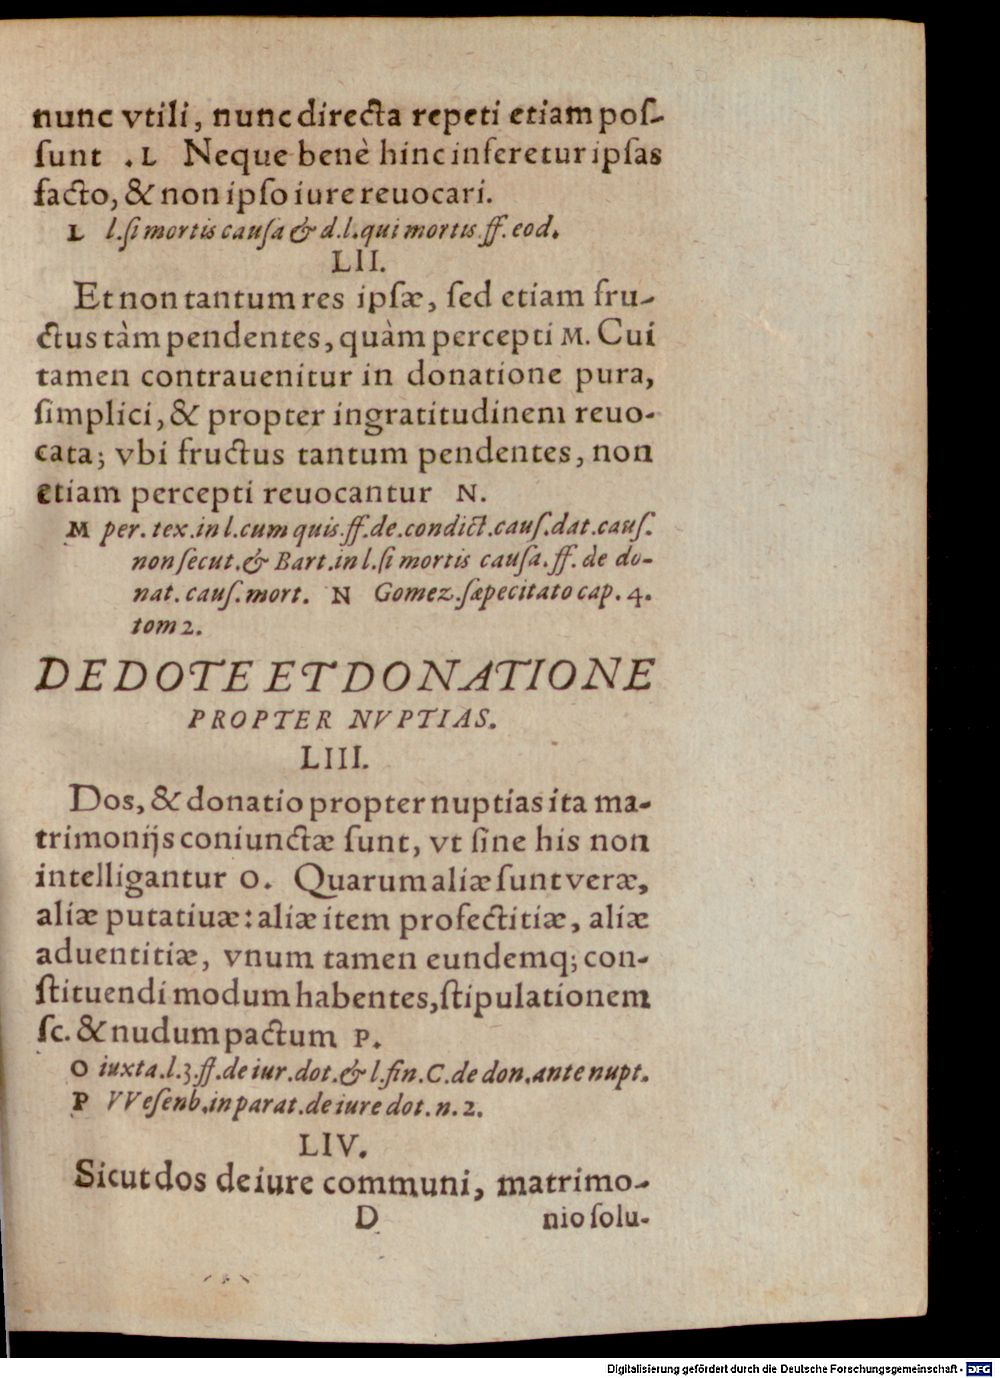 nunc vtili, nunc directa repeti etiam poſ-
ſunt . L Neque benè hinc inferetur ipſas
facto, & non ipſo iure reuocari.
L l. ſi mortis cauſa & d. l. qui mortis ff. eod.
LII.
Et non tantum res ipſæ, ſed etiam fru-
ctus tàm pendentes, quàm percepti M. Cui
tamen contrauenitur in donatione pura,
ſimplici, & propter ingratitudinem reuo-
cata; vbi fructus tantum pendentes, non
etiam percepti reuocantur N.
M per. tex. in l. cum quis. ff. de. condict. cauſ. dat. cauſ.
non ſecut. & Bart. in l. ſi mortis cauſa. ff. de do-
nat. cauſ. mort. N Gomez. ſæpe citato cap. 4.
tom 2.
DE DOTE ET DONATIONE
PROPTER NVPTIAS.
LIII.
Dos, & donatio propter nuptias ita ma-
trimonijs coniunctæ ſunt, vt ſine his non
intelligantur O. Quarum aliæ ſunt veræ,
aliæ putatiuæ: aliæ item profectitiæ, aliæ
aduentitiæ, vnum tamen eundemq; con-
ſtituendi modum habentes, ſtipulationem
ſc. & nudum pactum P.
O iuxta. l. 3. ff. de iur. dot. & l. fin. C. de don. ante nupt.
P VVeſenb. in parat. de iure dot. n. 2.
LIV.
Sicut dos de iure communi, matrimo-
D nio ſolu-
Digitalisierung gefördert durch die Deutsche Forschungsgemeinschaft - DFG